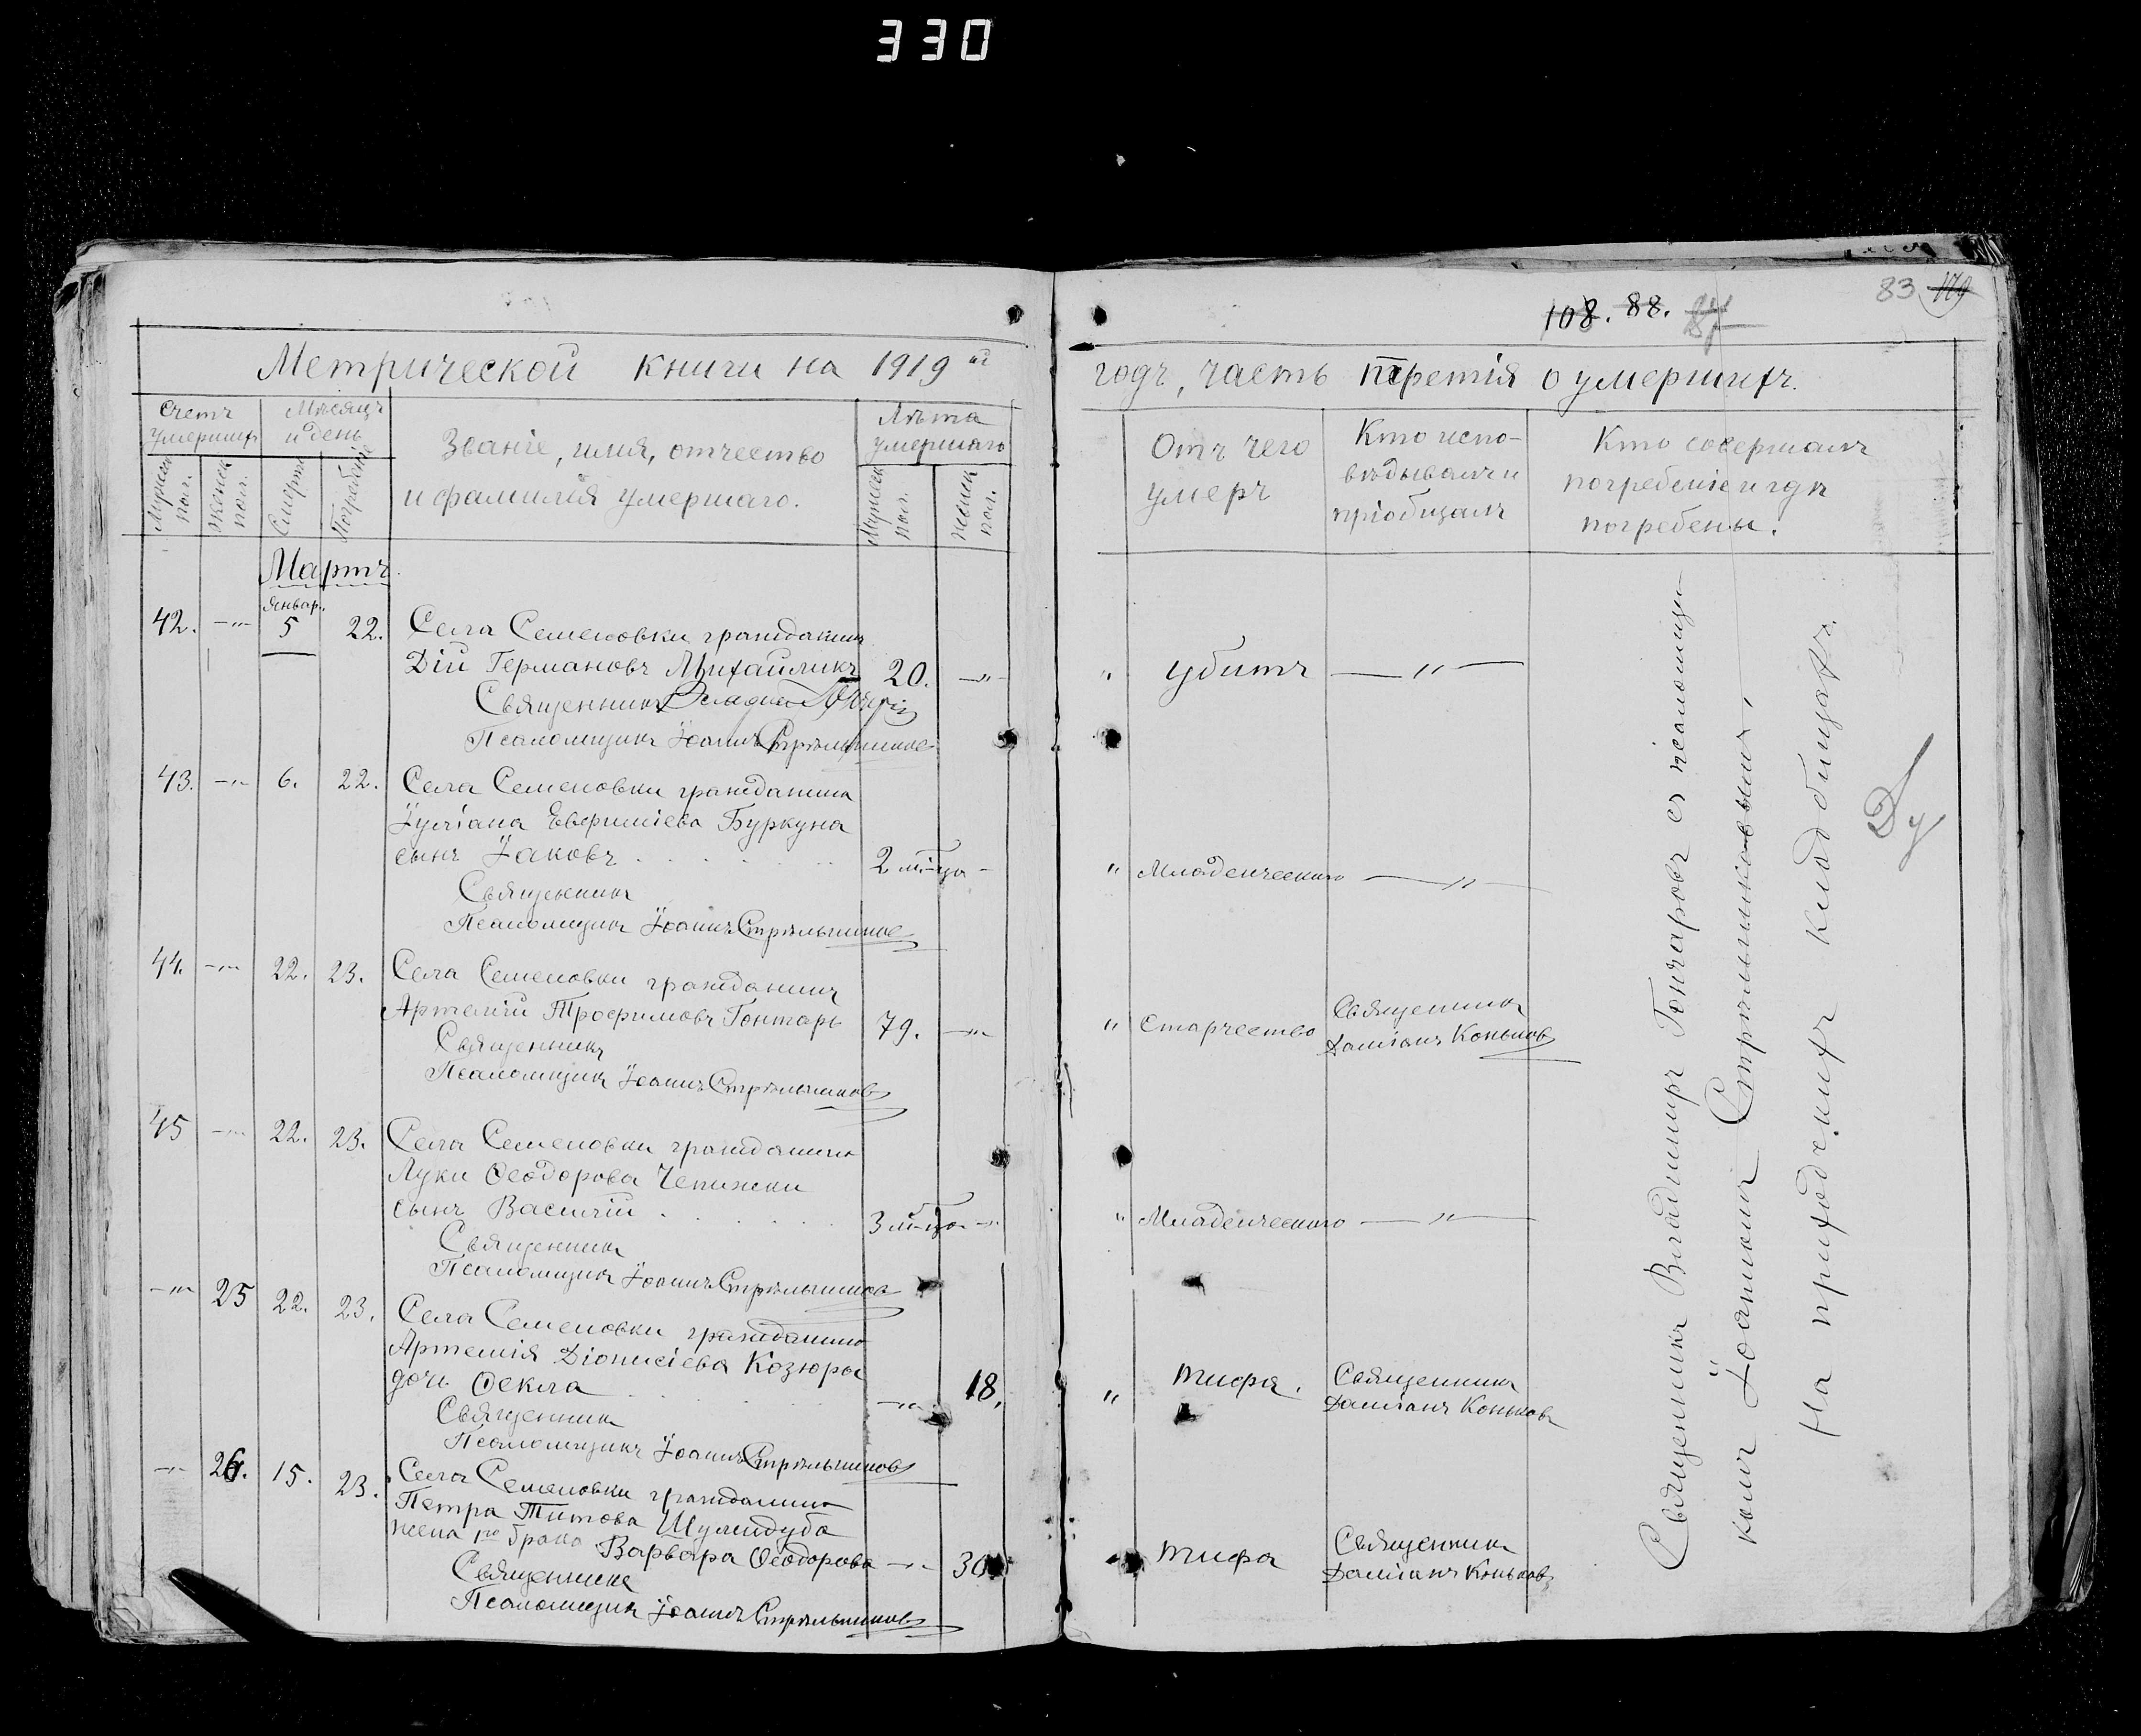 330
83 119
108. 88. 87
Метрической книги на 1919 ый
годъ, часть третія о умершихъ.
Счетъ умершихъ
Мѣсяцъ и день
Званіе, имя, отчество
и фамилія умершаго.
Лѣта умершаго
Мужеск. пол.
Женск. пол.
Смерти
Погребенія
Мужеск. пол.
Женск. пол.
Отъ чего
умеръ
Кто испо-
вѣдывалъ и
пріобщалъ
Кто совершалъ
погребеніе и гдѣ
погребены.
Мартъ.
Январ.
42. —"— 5 22. Села Семеновки гражданинъ
Дій Германовъ Михайликъ 20. —"— " убитъ —"—
Священникъ
Псаломщикъ Іоаннъ Стрѣльниковъ
43. —"— 6. 22. Села Семеновки гражданина
Іуліана Евфиміева Буркуна
сынъ Іаковъ . . . . . . 2 м-ца — " Младенческаго —"—
Священникъ
Псаломщикъ Іоаннъ Стрѣльниковъ
44. —"— 22. 23. Села Семеновки гражданинъ
Артемій Трофимовъ Гонтарь 79. —"— " Старчество Священникъ
Даміанъ Коньковъ
Священникъ
Псаломщикъ Іоаннъ Стрѣльниковъ
45 —"— 22. 23. Села Семеновки гражданина
Луки Ѳеодорова Чепижки
сынъ Василій . . . . . . 3 м-ца —"— " Младенческаго —"—
Священникъ
Псаломщикъ Іоаннъ Стрѣльниковъ
—"— 25 22. 23. Села Семеновки гражданина
Артемія Діонисіева Козюры
дочь Ѳекла . . . —"— 18. " тифа. Священникъ
Даміанъ Коньковъ
Священникъ
Псаломщикъ Іоаннъ Стрѣльниковъ
—"— 26. 15. 23. Села Семеновки гражданина
Петра Титова Шулидуба
жена 1го брака Варвара Ѳеодорова —"— 30 тифа Священникъ
Даміанъ Коньковъ
Священникъ
Псаломщикъ Іоаннъ Стрѣльниковъ
Священникъ Владиміръ Гончаровъ съ псаломщи-
комъ Іоанномъ Стрѣльниковымъ,
На приходскихъ кладбищахъ.